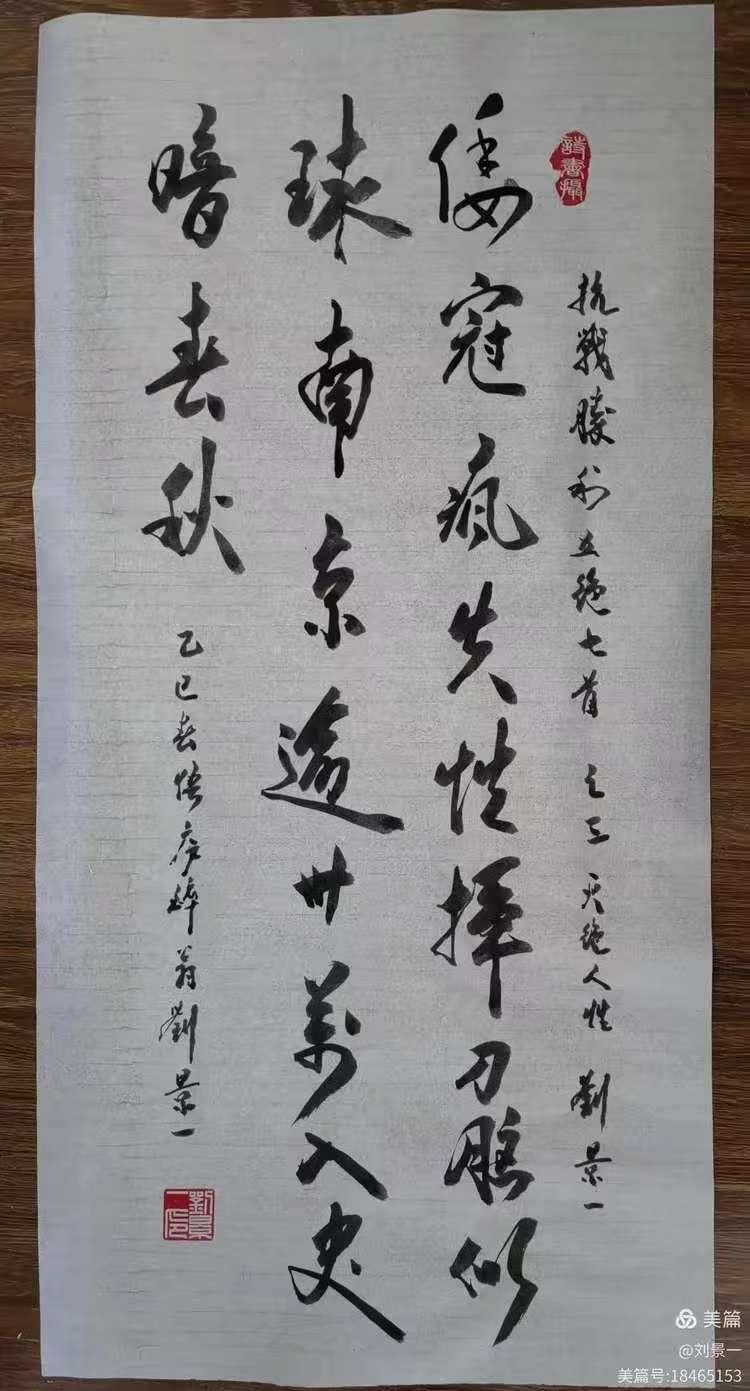 詩書攝
抗戰勝利五绝七首 之三 灭绝人性 劉景一
倭寇疯失性揮刀脑似
球南京逾卅萬入史
暗春秋
乙巳春 醉翁劉景一
劉景一印
美篇
@刘景一
美篇号:18465153